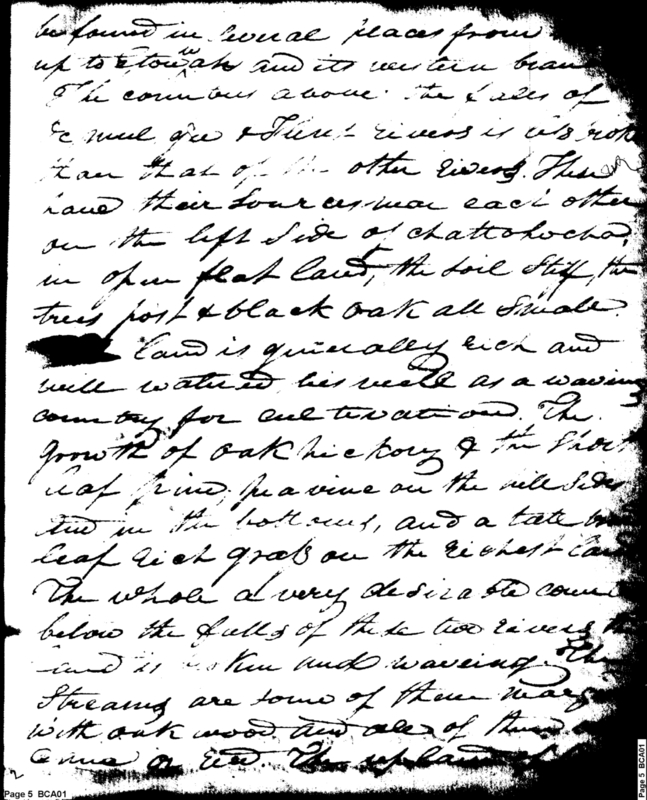 be found in several places from
up to Etowah and its western bran
The country above the falls of
Oc mul gee & Flint rivers is less brok
than that of the other rivers. These
have their sources near each other
on the left side of chattohocha,
in open flat land, the soil stiff, the
trees post & black oak all small.
land is generally rich and
well watered, lies well as a waving
country for cultivation. The
growth of oak hickory & the short
leaf pine, pea vine on the hill sides
and in the bottoms, and a tall
leaf rich grass on the richest lan
The whole a very desirable coun
below the falls of these two rivers
land is broken and waveing. The
Streams are some of them marg
with oak wood and all of them
cane or reed. The upland of
Page 5 BCA01
Page 5 BCA01